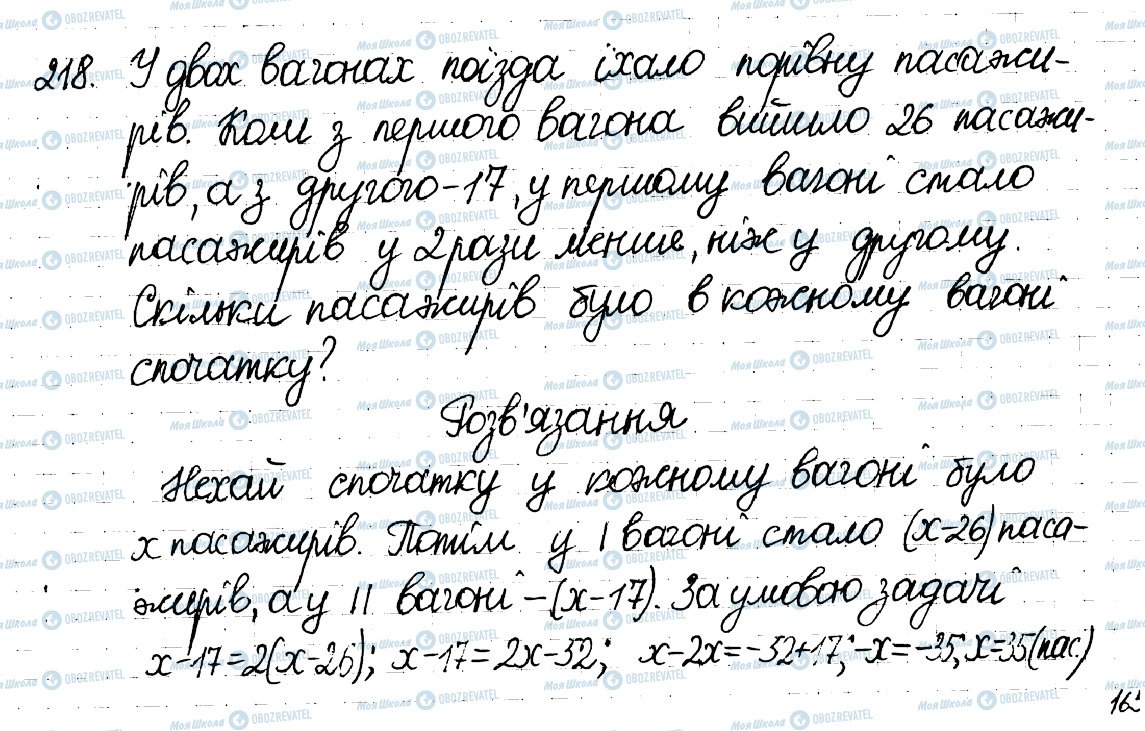 218. У двох вагонах поїзда їхало порівну пасажи-
рів. Коли з першого вагона вийшло 26 пасажи-
рів, а з другого - 17, у першому вагоні стало
пасажирів у 2 рази менше, ніж у другому.
Скільки пасажирів було в кожному вагоні
спочатку?
Розв'язання
Нехай спочатку у кожному вагоні було
х пасажирів. Потім у I вагоні стало (х-26) паса-
жирів, а у II вагоні - (х-17). За умовою задачі
х-17=2(х-26); х-17=2х-52; х-2х=-52+17; -х=-35; х=35(пас.)